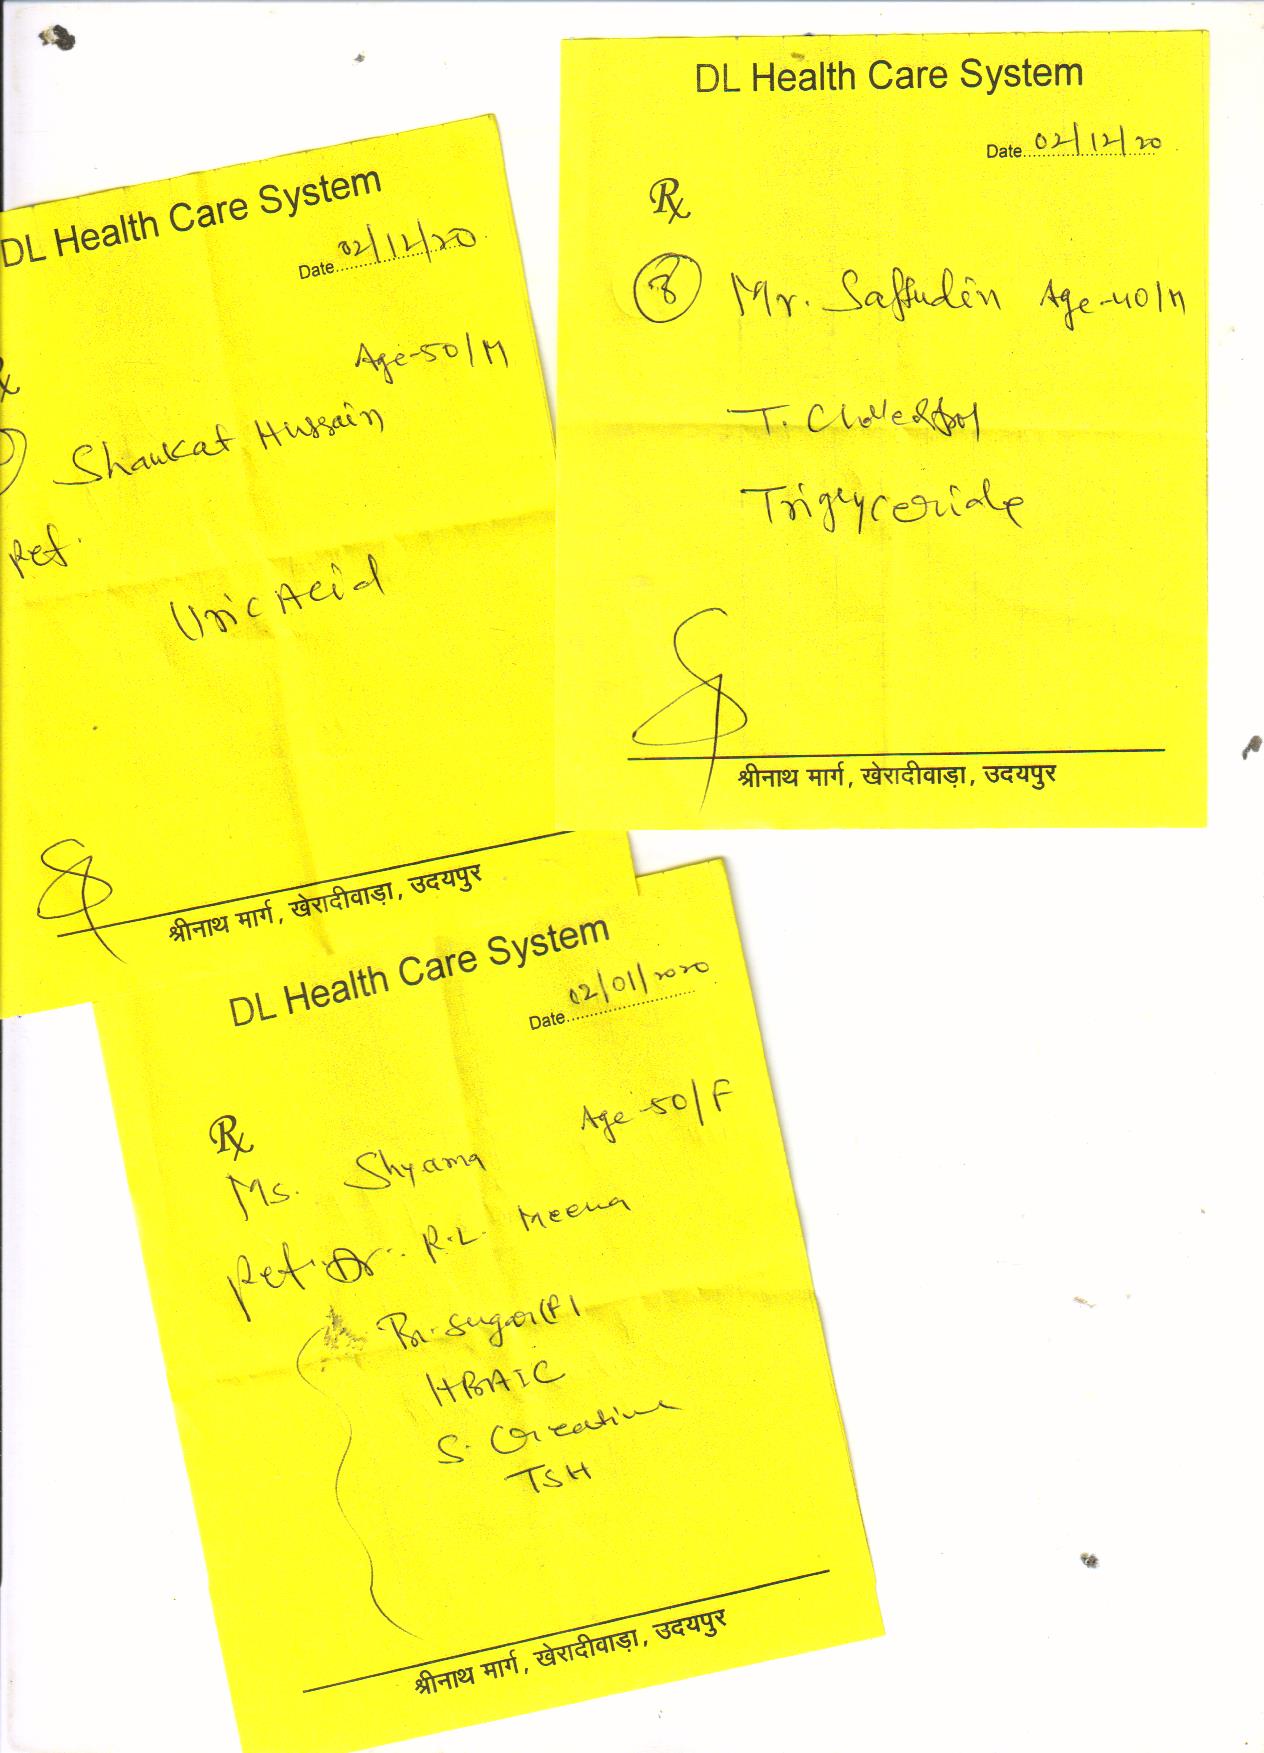 DL Health Care System
Date 02/12/20
Age-50/M
Shaukat Hussain
Ref.
Uric Acid
श्रीनाथ मार्ग, खेरादीवाड़ा, उदयपुर
DL Health Care System
Date 02/12/20
Rx
8 Mr. Saffudin Age-40/M
T. Cholestrol
Triglyceride
श्रीनाथ मार्ग, खेरादीवाड़ा, उदयपुर
DL Health Care System
Date 02/01/2020
Rx
Age 50/F
Ms. Shyama
Ref. Dr. R.L. Meena
Bl. Sugar (F)
HBA1C
S. Creatine
TSH
श्रीनाथ मार्ग, खेरादीवाड़ा, उदयपुर